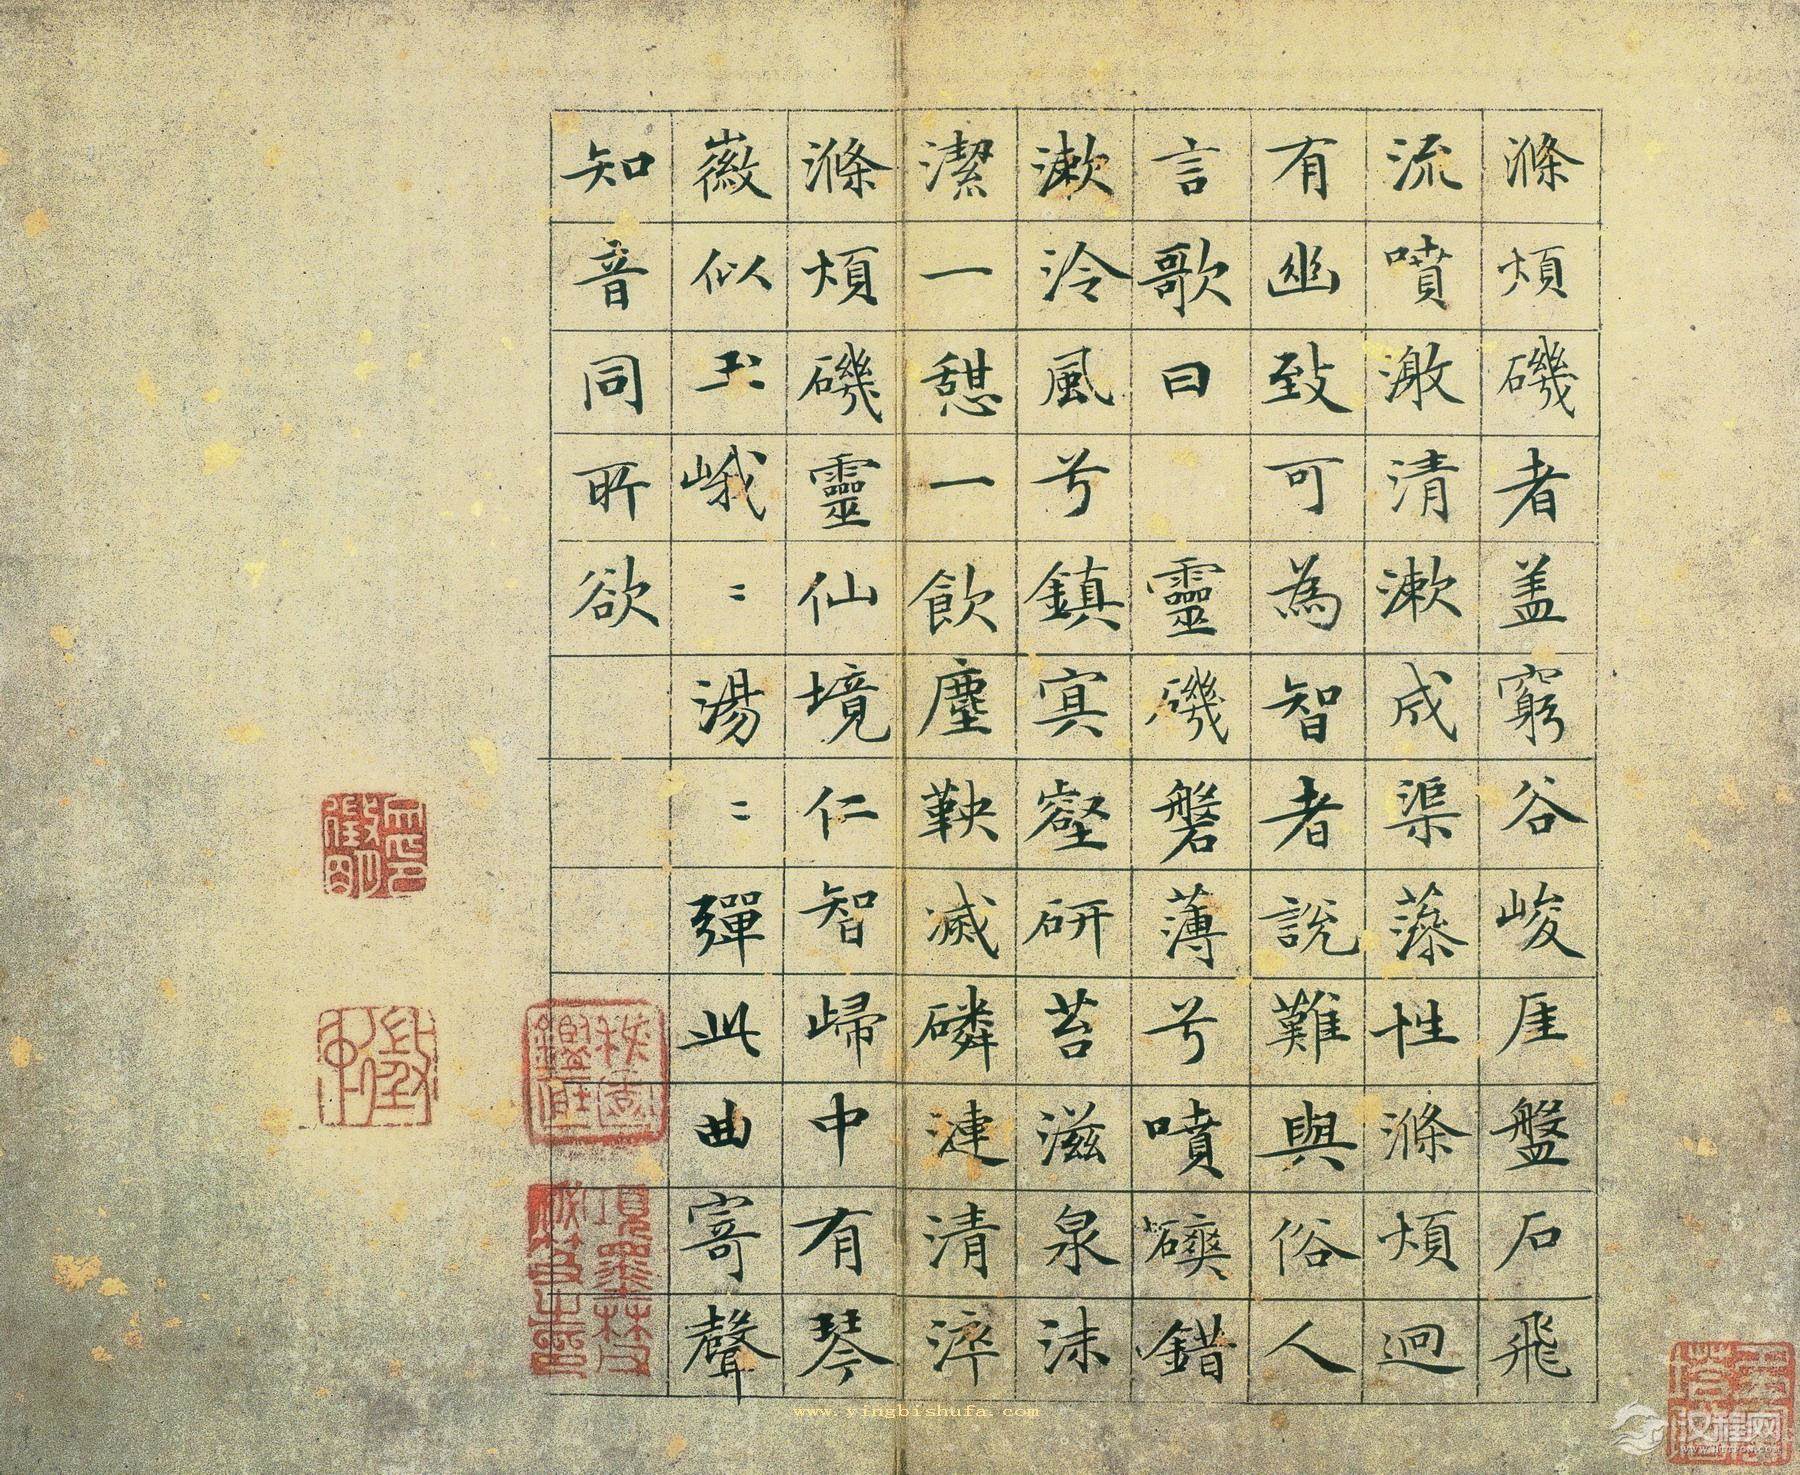 滌煩磯者盖窮谷峻厓盤石飛
流噴激清漱成渠藻性滌煩迴
有幽致可為智者說難與俗人
言歌曰 靈磯磐薄兮噴礐錯
漱泠風兮鎮冥壑研苔滋泉沫
潔一憩一飲塵鞅滅磷漣清淬
滌煩磯靈仙境仁智歸中有琴
徽似玉峨〻湯〻彈此曲寄聲
知音同所欲
www.yingbishufa.com
汉程网